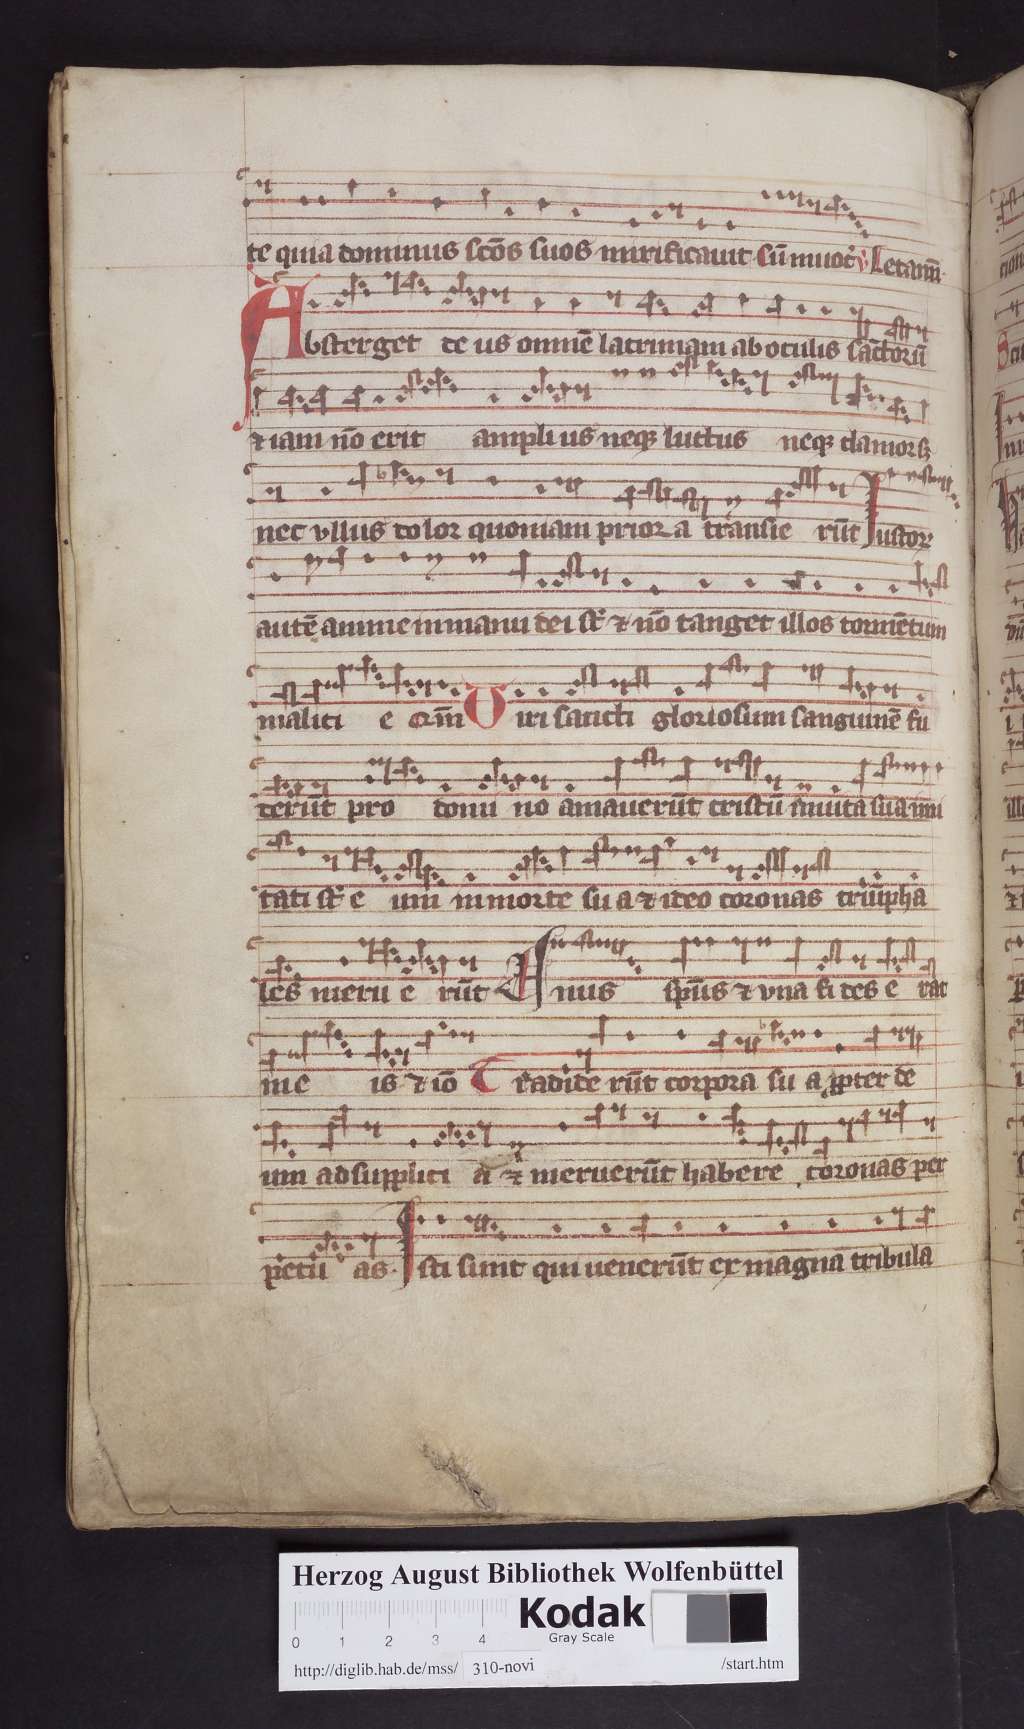 te quia dominus scōs suos mirificauit. sū in uoc̄ ℣ Letamī
Absterget de us omnē lacrimam ab oculis sāctorū
⁊ iam nō erit ampli us neqꝫ luctus neqꝫ clamor sꝫ
nec vllus dolor quoniam prior a transie rūt Iustorꝝ
autē anime in manu dei st̄ ⁊ nō tanget illos tormētum
malici e Uiri sancti gloriosum sanguinē fu
derūt pro domi no amauerūt cristū in uita sua imi
tati st̄ e um in morte su a ⁊ ideo coronas triūpha
les meru e rūt Unus spūs ⁊ vna fi des e rat
in e is ⁊ iō Tradide rūt corpora su a ꝓpter de
um ad supplici a ⁊ meruerūt habere coronas per
petu as. Isti sunt qui uenerūt ex magna tribula
Herzog August Bibliothek Wolfenbüttel
0 1 2 3 4
Kodak
Gray Scale
http://diglib.hab.de/mss/ 310-novi /start.htm